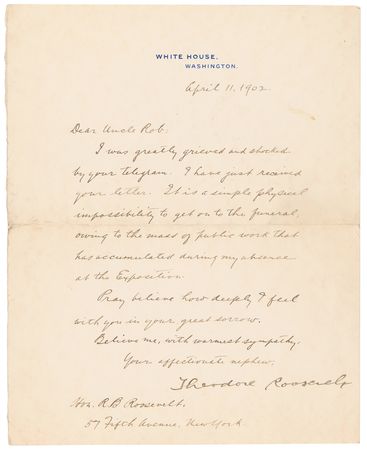 WHITE HOUSE,
WASHINGTON.
April 11, 1902.
Dear Uncle Rob:
I was greatly grieved and shocked
by your telegram. I have just received
your letter. It is a simple physical
impossibility to get on to the funeral,
owing to the mass of public work that
has accumulated during my absence
at the Exposition.
Pray believe how deeply I feel
with you in your great sorrow.
Believe me, with warmest sympathy,
Your affectionate nephew,
Theodore Roosevelt
Hon. R B Roosevelt.
57 Fifth Avenue, New York